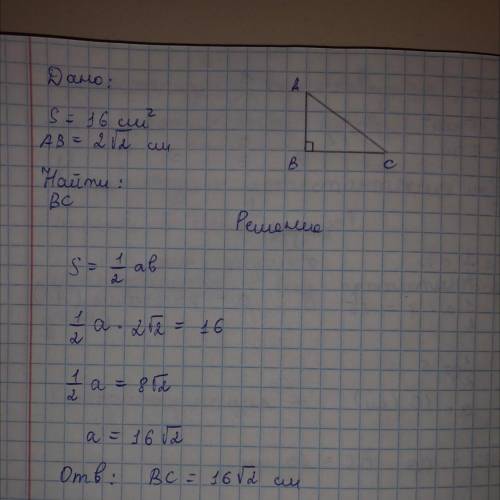 Дано:
S = 16 см²
AB = 2√2 см
Найти:
BC
A
B
C
Решение
S = 1/2 ab
1/2 a · 2√2 = 16
1/2 a = 8√2
a = 16√2
Отв: BC = 16√2 см